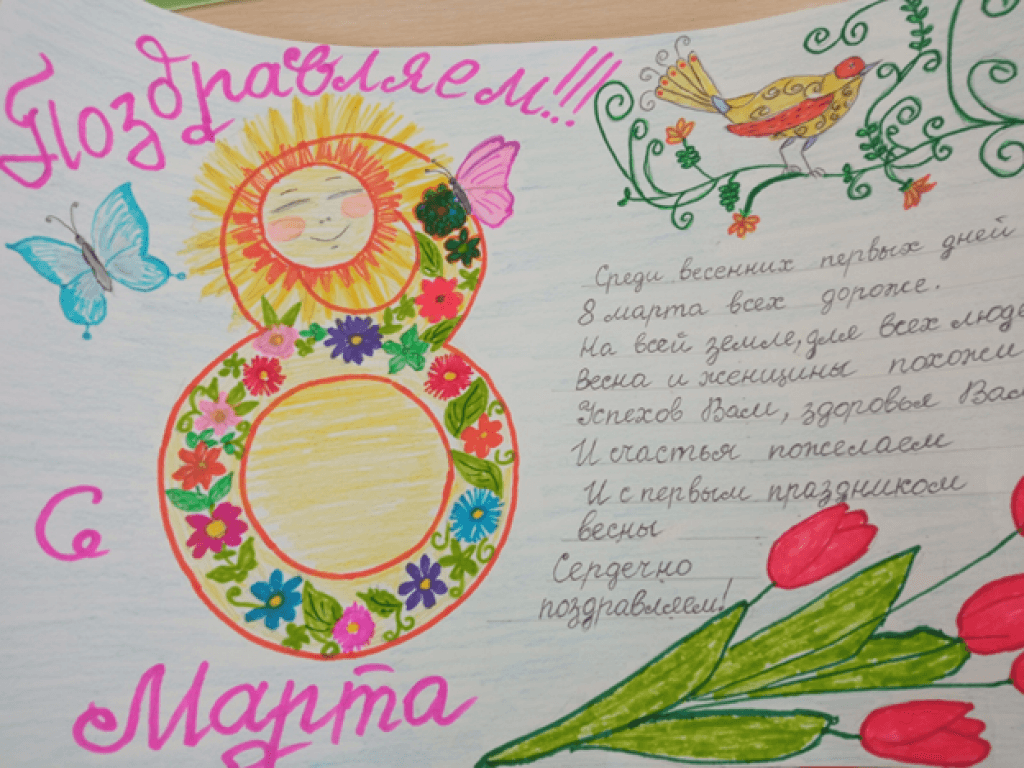 Поздравляем!!!
С
8
Марта
Среди весенних первых дней
8 марта всех дороже.
На всей земле, для всех люде
Весна и женщины похожи
Успехов Вам, здоровья Вам
И счастья пожелаем
И с первым праздником
весны
Сердечно
поздравляем!